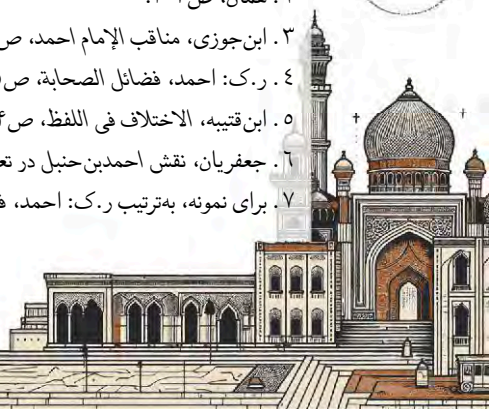 ۳. ابن‌جوزی، مناقب الإمام احمد، ص
۴. ر.ک: احمد، فضائل الصحابة،
۵. ابن‌قتیبه، الاختلاف فی اللفظ،
۶. جعفریان، نقش احمدبن‌حنبل در
۷. برای نمونه، به‌ترتیب ر.ک: احمد،